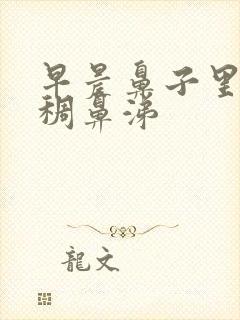 早晨鼻子里
稠鼻涕
龍文